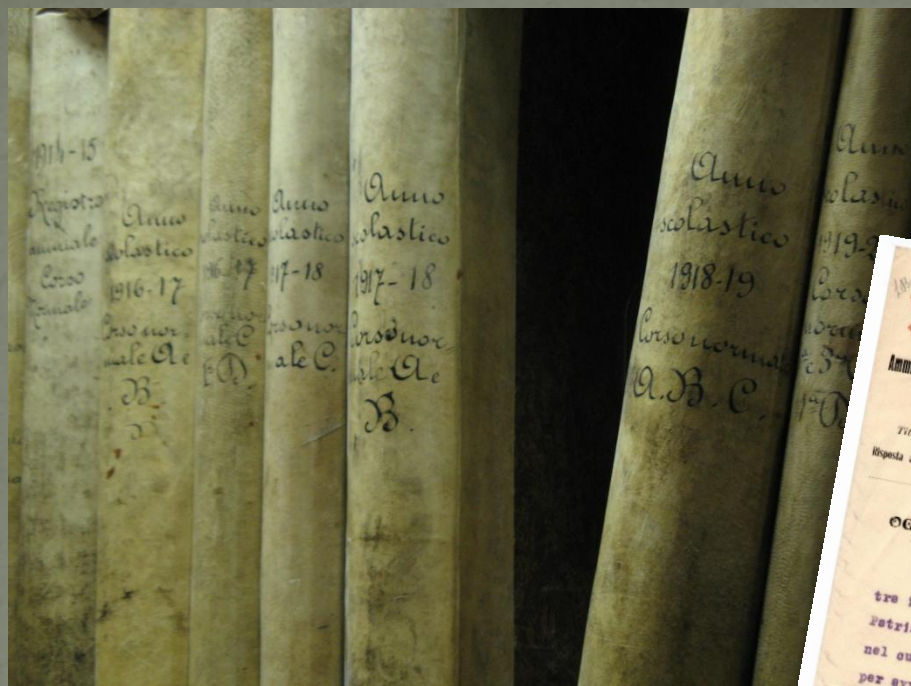 1914-15
Registro
annuale
Corso
Normale
Anno
scolastico
1916-17
Corso nor-
male A e
B
Anno
olastico
16-17
ale C
Anno
olastico
17-18
Corso nor
ale C.
Anno
scolastico
1917-18
Corso nor-
male A e
B.
Anno
scolastico
1918-19
Corso normale
A. B. C.
Anno
colastico
1919-2
Corso
Amm
Risposta
OG
tre
Patri
nel cu
per avv